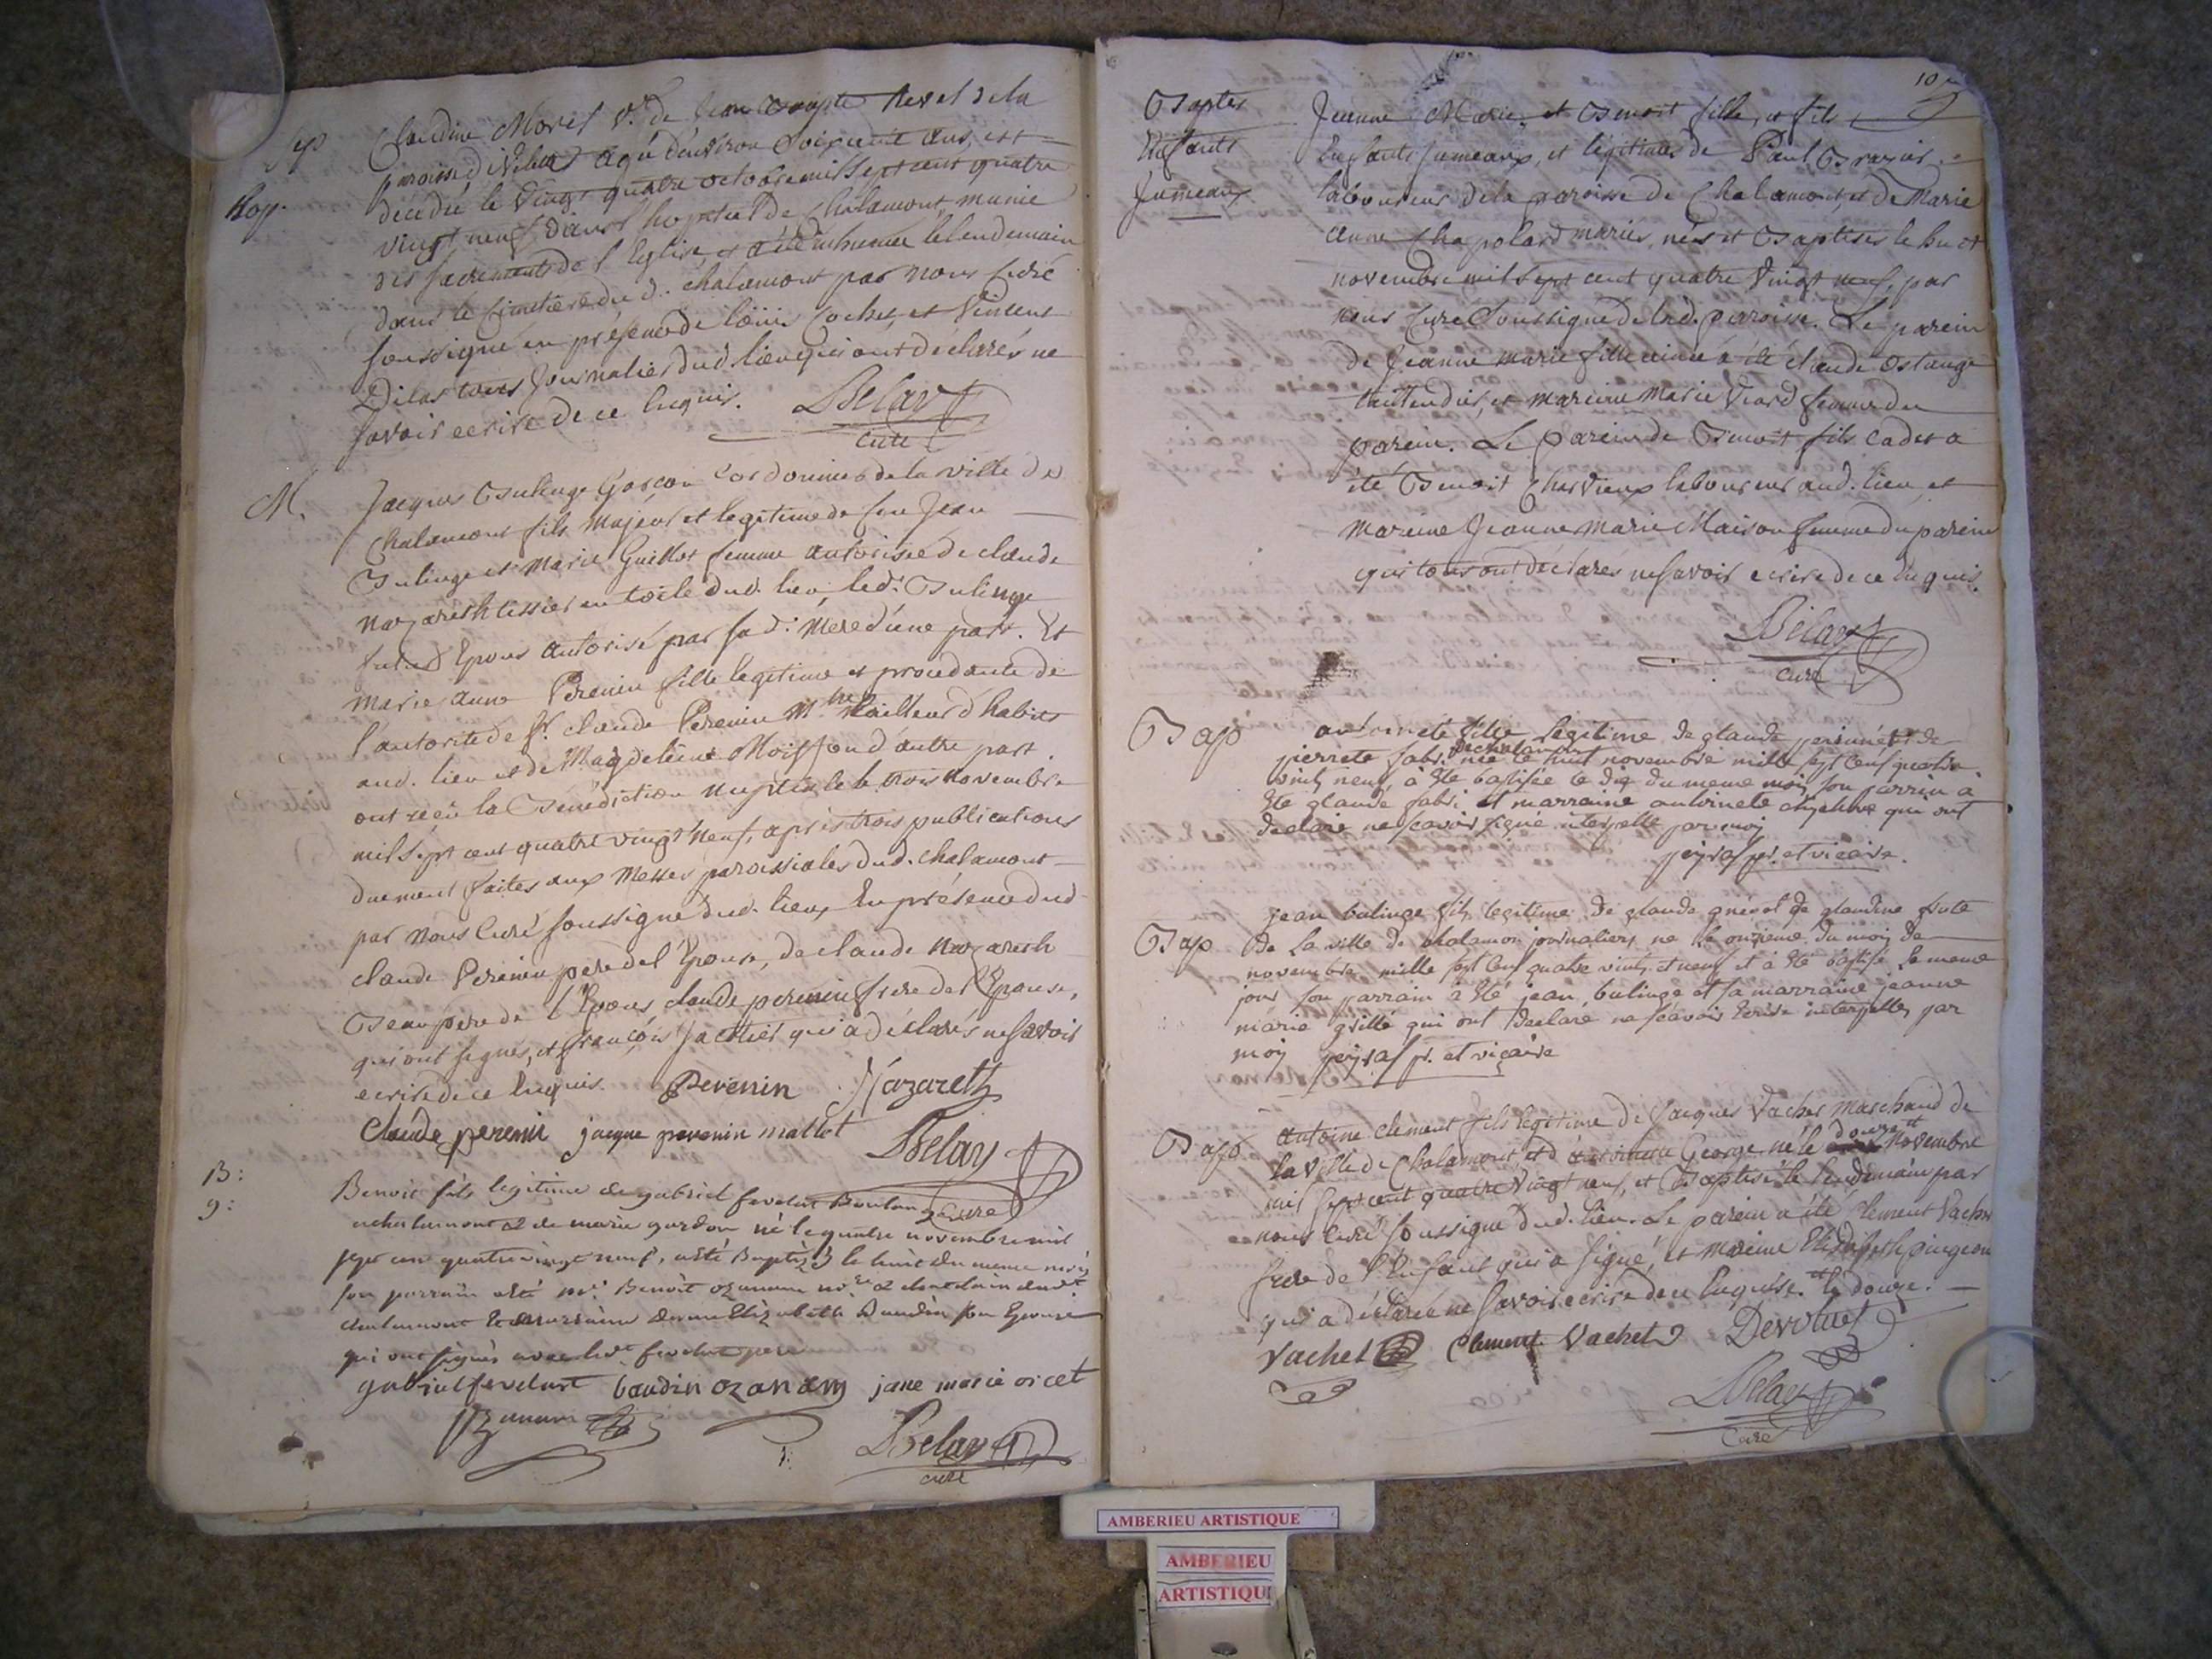 Sep
hop.
Claudine Morel v.e de Jean Revel de la
paroisse de agée d'environ soixante ans, est
décedée le vingt quatre octobre mil sept cent quatre
vingt neuf dans l'hopital de Chalamont, munie
des sacrements de l'Eglise, et a été inhumée le lendemain
dans le cimetière dud. chalamont par nous curé
soussigné en présence de Cochet, et Vincent
journalier dud. lieu qui ont declarés ne
savoir ecrire de ce enquis. Delay
curé
M.
Jacques Bulinge Garcon Cordonnier de la ville de
Chalamont fils majeur et legitime de feu Jean
Bulinge et Marie Guillot femme autorisée de claude
nazareth tissier en toile dud. lieu, led. Bulinge
Epoux autorisé par sad. Mere d'une part. Et
marie anne Perenin fille legitime et procedante de
l'autorité de Sr. claude Perenin M.tre tailleur d'habits
aud. lieu et de Magdeleine Moisson d'autre part.
ont reçu la Bénédiction nuptiale le trois novembre
mil sept cent quatre vingt neuf, après trois publications
duement faites aux Messes paroissiales dud. Chalamont
par nous curé soussigné dud. lieu, En présence dud.
claude Perenin pere de l'Epouse, de claude nazareth
Beaupere de l'Epoux, claude perenin frere de l'Epouse,
qui ont signés, et françois qui a déclarés ne savoir
ecrire de ce Enquis. Perenin Nazareth
Claude perenin jacque perenin mallet Delay
curé
B:
9:
Benoit fils legitime de gabriel fevelat Boulanger
a chalamont & de marie gardon né le quatre novembre mil
sept cen quatre vingt neuf, a été Baptizé le huit du meme mois
son parrain a été mr. Benoit ozanam no.re & chatelain dud.
chalamont & marraine Elizabeth Baudin son Epouse
qui ont signés avec led. fevelat pere
gabriel fevelat baudin ozanam jane marie orcet
Ozanam
Delay
curé
10
Baptes
Enfants
Jumeaux
Jeanne Marie, et Benoit fille, et fils
Enfants jumeaux, et légitimes de Paul
laboureur de la paroisse de Chalamont, et de Marie
anne Chapolard mariés, nés et Baptisés le huit
novembre mil sept cent quatre vingt neuf, par
nous Curé soussigné de lad. paroisse. Le parein
de Jeanne marie fille ainée a été claude
et mareine Marie Viard femme du
parein. Le parein de Benoit fils cadet a
été Benoit Charvieux laboureur aud. lieu, et
mareine Jeanne Marie Maison femme du parein
qui tous ont déclarés ne savoir ecrire de ce Enquis.
Delay
curé
Bap
antoinete fille legitime de glaude et de
pierrete fabri de chalamont née le huit novembre mille sept cens quatre
vint neuf, à été baptisée le dix du meme mois son parrin à
été glaude fabri et marraine antoinete qui ont
declaré ne scavoir signé interpelle par moy
pr. et vicaire.
Bap
jean bulinge fils legitime de glaude de glaudine
de la ville de chalamon journaliers ne le onzieme du mois de
novembre mille sept cens quatre vint et neuf et à été baptisé le meme
jour son parrain à été jean bulinge et sa marraine jeanne
marie qui ont declaré ne scavoir écrire interpellés par
moy pr. et vicaire
Bap
Antoine clement fils legitime de Jacques Vachet Marchand de
la ville de Chalamont et d'antoinette George né le douze novembre
mil sept cent quatre vingt neuf, et Baptisé le lendemain par
nous curé soussigné dud. lieu. Le parein a été clement Vachet
frere de l'enfant qui a signé, et mareine Elisabeth
qui a déclarée ne savoir ecrire de ce Enquise. le douze.
Vachet Clement Vachet Devoluet
Delay
Curé
AMBERIEU ARTISTIQUE
AMBERIEU
ARTISTIQU